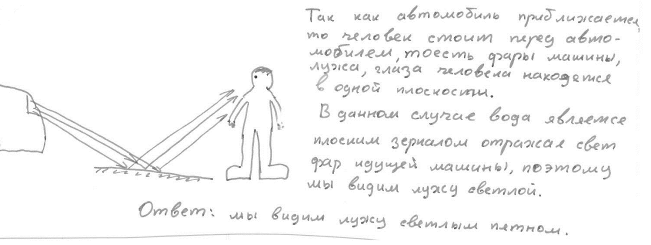 Так как автомобиль приближается,
то человек стоит перед авто-
мобилем, тоесть фары машины,
лужа, глаза человека находятся
в одной плоскости.
В данном случае вода является
плоским зеркалом отражая свет
фар идущей машины, поэтому
мы видим лужу светлой.
Ответ: мы видим лужу светлым пятном.